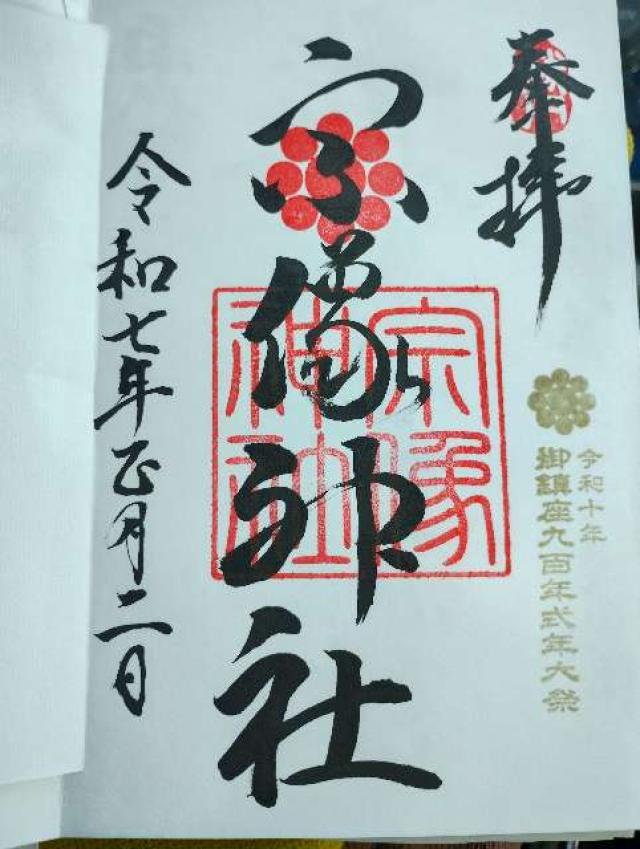 奉拝
令和十年
御鎮座九百年式年大祭
宗像神社
宗像
神社
令和七年正月二日